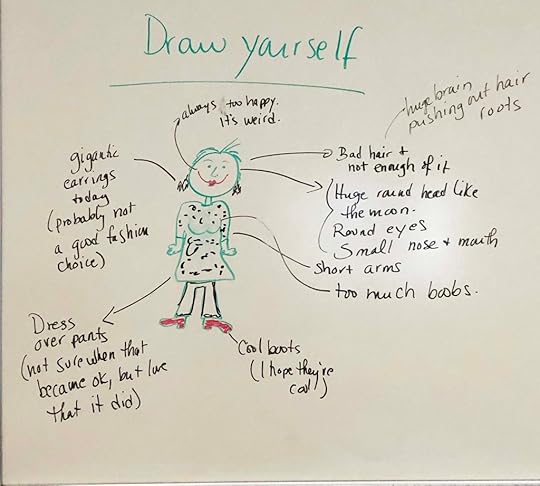 Draw yourself
always too happy.
it's weird.
huge brain
pushing out hair
roots
gigantic
earrings
today
(probably not
a good fashion
choice)
Bad hair &
not enough of it
Huge round head like
the moon.
Round eyes
Small nose & mouth
short arms
too much boobs.
Dress
over pants
(not sure when that
became ok, but luv
that it did)
Cool boots
(I hope they're
cool)